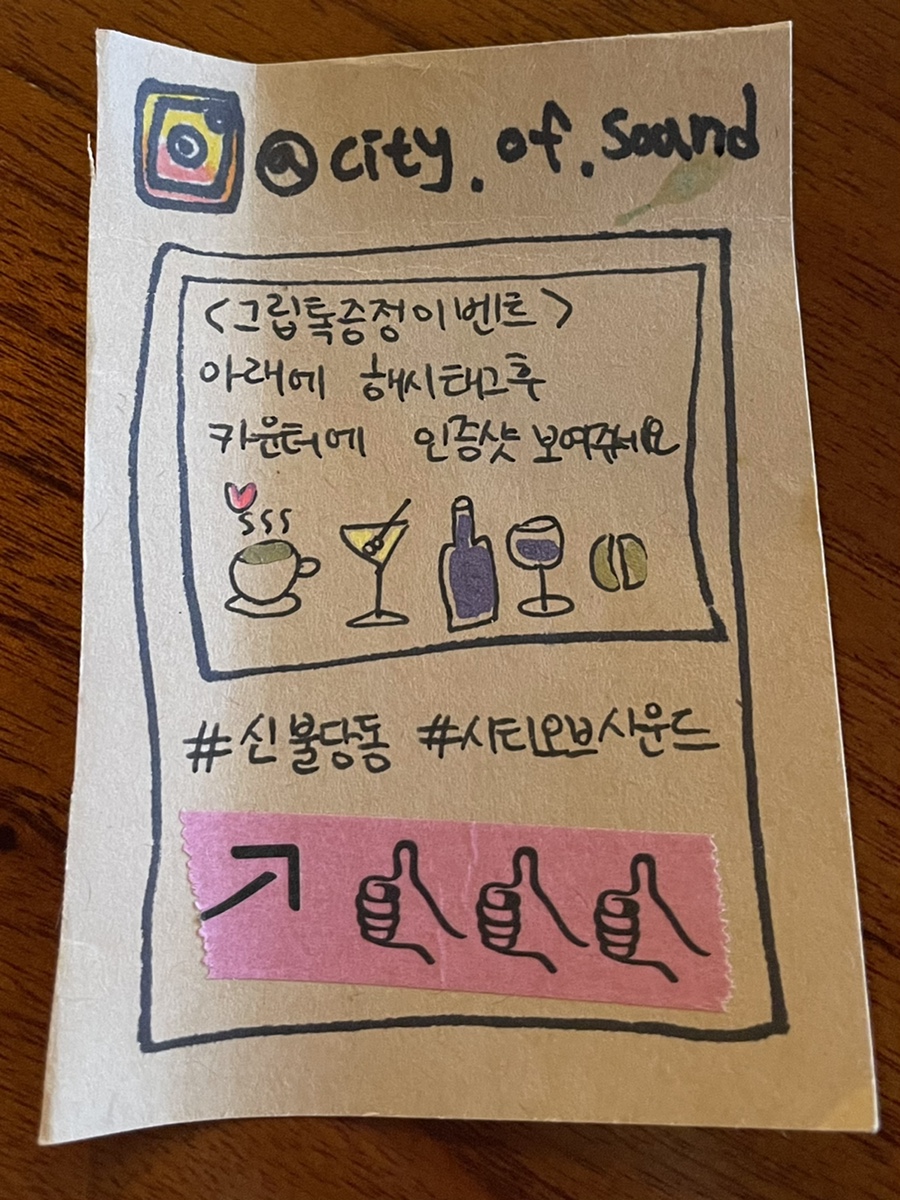 @city.of.sound
<그립톡증정이벤트>
아래에 해시태그후
카운터에 인증샷 보여주세요
#신불당동 #시티오브사운드